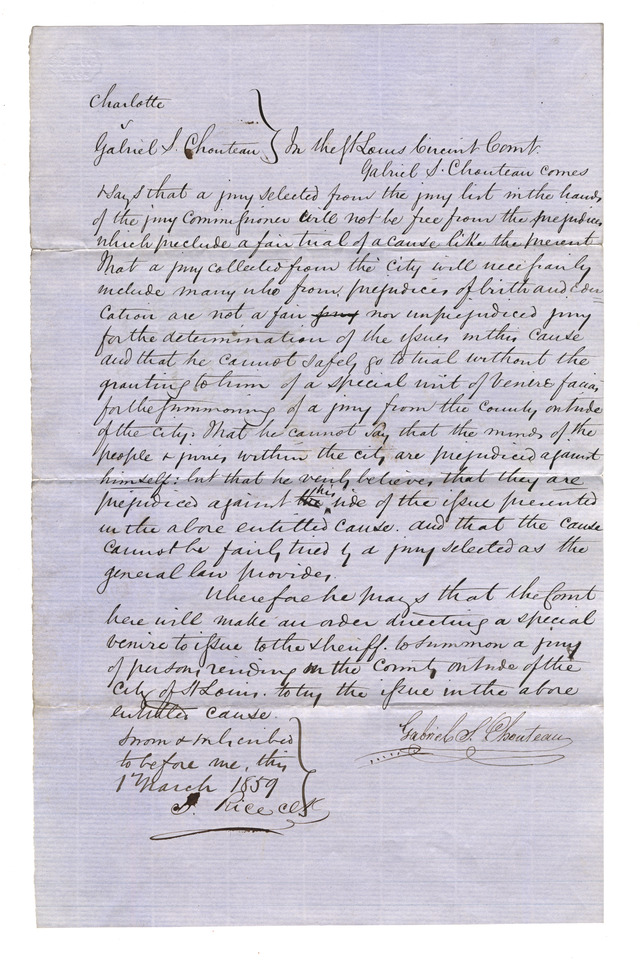 Charlotte
vs
Gabriel S. Chouteau } In the St Louis Circuit Court.
Gabriel S. Chouteau comes
& says that a jury selected from the jury list in the hands
of the jury Commissioner will not be free from the prejudices
which preclude a fair trial of a cause like the present
That a jury collected from the city will necessarily
include many who from prejudices of birth and edu-
cation are not a fair jury nor unprejudiced jury
for the determination of the issues in this cause
and that he cannot safely go to trial without the
granting to him of a special writ of Venire facias
for the summoning of a jury from the county outside
of the city. That he cannot say that the minds of the
people & juries within the city are prejudiced against
himself: but that he verily believes that they are
prejudiced against the this side of the issue presented
in the above entitled cause. and that the cause
cannot be fairly tried by a jury selected as the
general law provides.
Wherefore he prays that the Court
here will make an order directing a special
venire to issue to the sheriff. to summon a jury
of persons residing in the County outside of the
City of St Louis. to try the issue in the above
entitled cause.
Sworn & subscribed
to before me, this
1st March 1859
S. Rice clk
Gabriel S. Chouteau